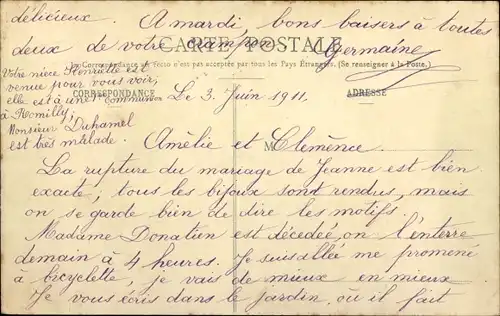 délicieux. A mardi, bons baisers à toutes
deux de votre
Germaine
CARTE POSTALE
La Correspondance au recto n'est pas acceptée par tous les Pays Étrangers. (Se renseigner à la Poste.)
CORRESPONDANCE
ADRESSE
Votre nièce Henriette est
venue pour vous voir,
elle est à une
Communion
à Romilly,
Monsieur Duhamel
est très malade.
Le 3 Juin 1911.
M
Amélie et Clémence.
La rupture du mariage de Jeanne est bien
exacte; tous les bijoux sont rendus, mais
on se garde bien de dire les motifs.
Madame Donatien est décédée, on l'enterre
demain à 4 heures. Je suis allée me promené
à bicyclette, je vais de mieux en mieux
Je vous écris dans le jardin où il fait